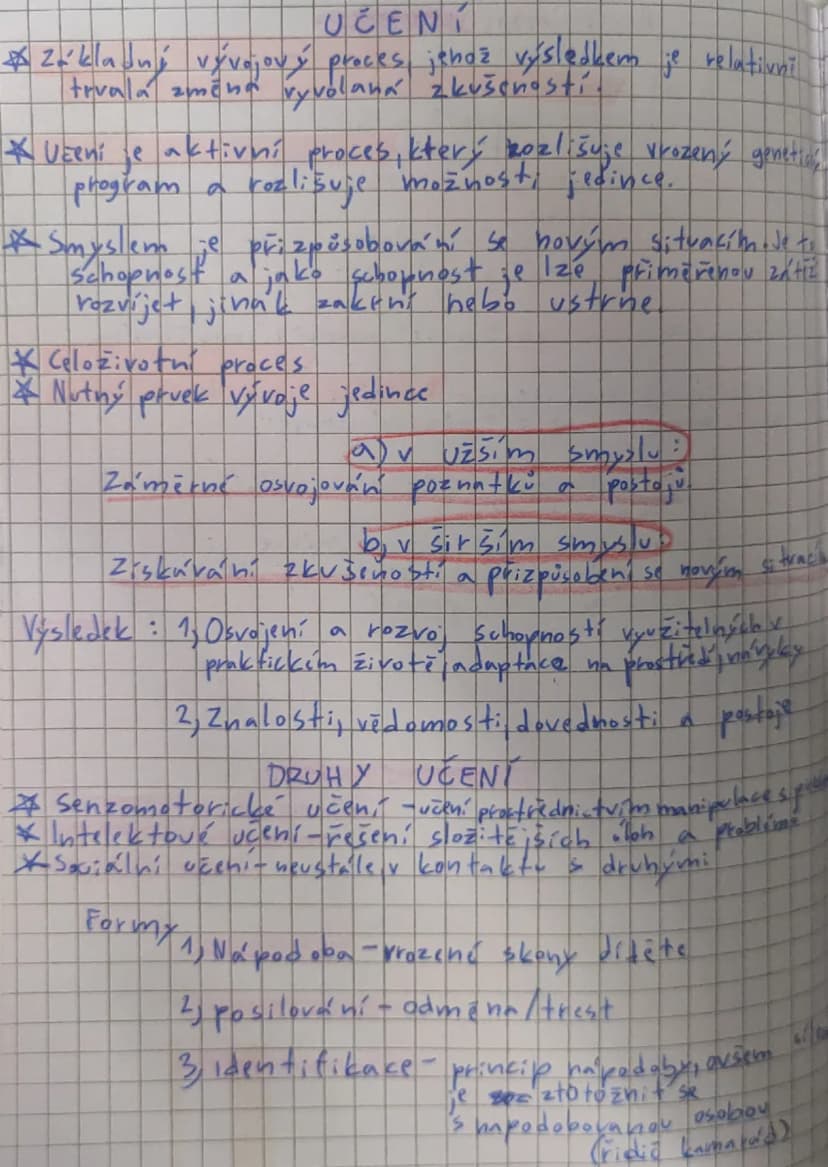 UČENÍ
* Základný vývojový proces, jehož výsledkem je relativní
trvalá změna vyvolaná zkušeností.
* Učení je aktivní proces, který rozlišuje vrozený
program a rozlišuje možnosti jedince.
* Smyslem je přizpůsobování se novým situacím. Je to
schopnost a jako schopnost je lze přiměřenou zátěž
rozvíjet, jinak zakrní nebo ustrne.
* Celoživotní proces
* Nutný prvek vývoje jedince
a) v užším smyslu:
Záměrné osvojování poznatků a postojů.
b, v širším smyslu:
Získávání zkušeností a přizpůsobení se novým
Výsledek: 1, Osvojení a rozvoj schopností využitelných v
praktickím životě, adaptace na prostředí, návyky
2, Znalosti, vědomosti, dovednosti a postoje
DRUHY UČENÍ
* Senzomotorické učení - učení prostřednictvím manipulace s
* Intelektové učení - řešení složitějších úloh a problémů
* Sociální učení - neustále v kontaktu s druhými
Formy
1, Nápodoba - vrozené skony dítěte
2, posilování - odměna/trest
3, identifikace - princip nápodoby, ovšem
je ztotožnit se
s napodobovanou osobou
(řidič kamarád)